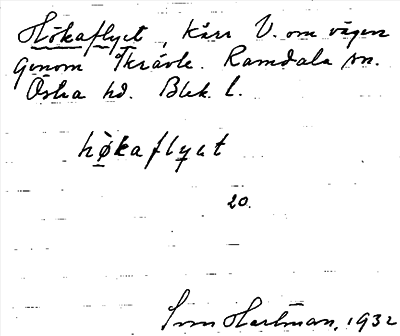 Hökaflyet, Kärr V. om vägen
genom Skrävle. Ramdala sn.
Östra hd. Blek. l.
hökaflyet
20.
Sven Hartman, 1932